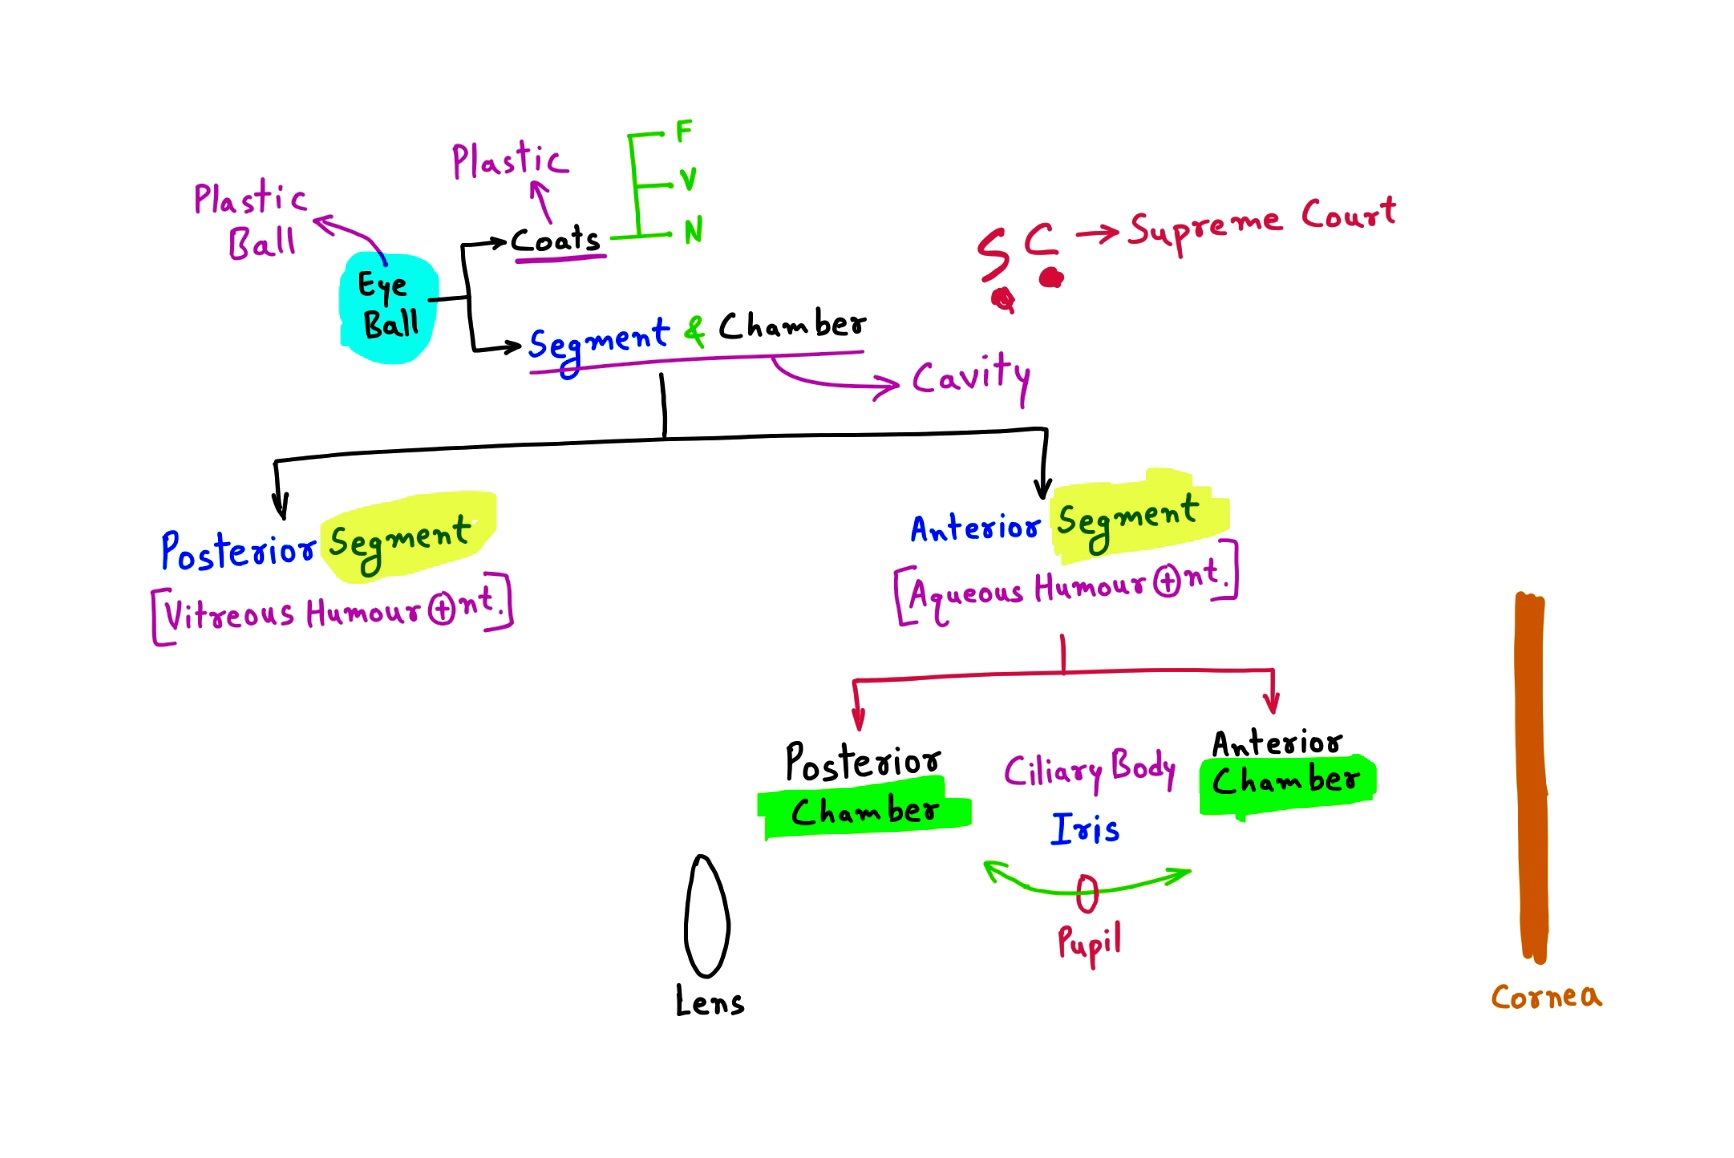 Plastic
Ball
Plastic
F
V
N
Coats
Eye
Ball
Segment & Chamber
SC → Supreme Court
Cavity
Posterior Segment
[Vitreous Humour ⊕nt.]
Anterior Segment
[Aqueous Humour ⊕nt.]
Posterior
Chamber
Ciliary Body
Iris
Anterior
Chamber
Pupil
Lens
Cornea